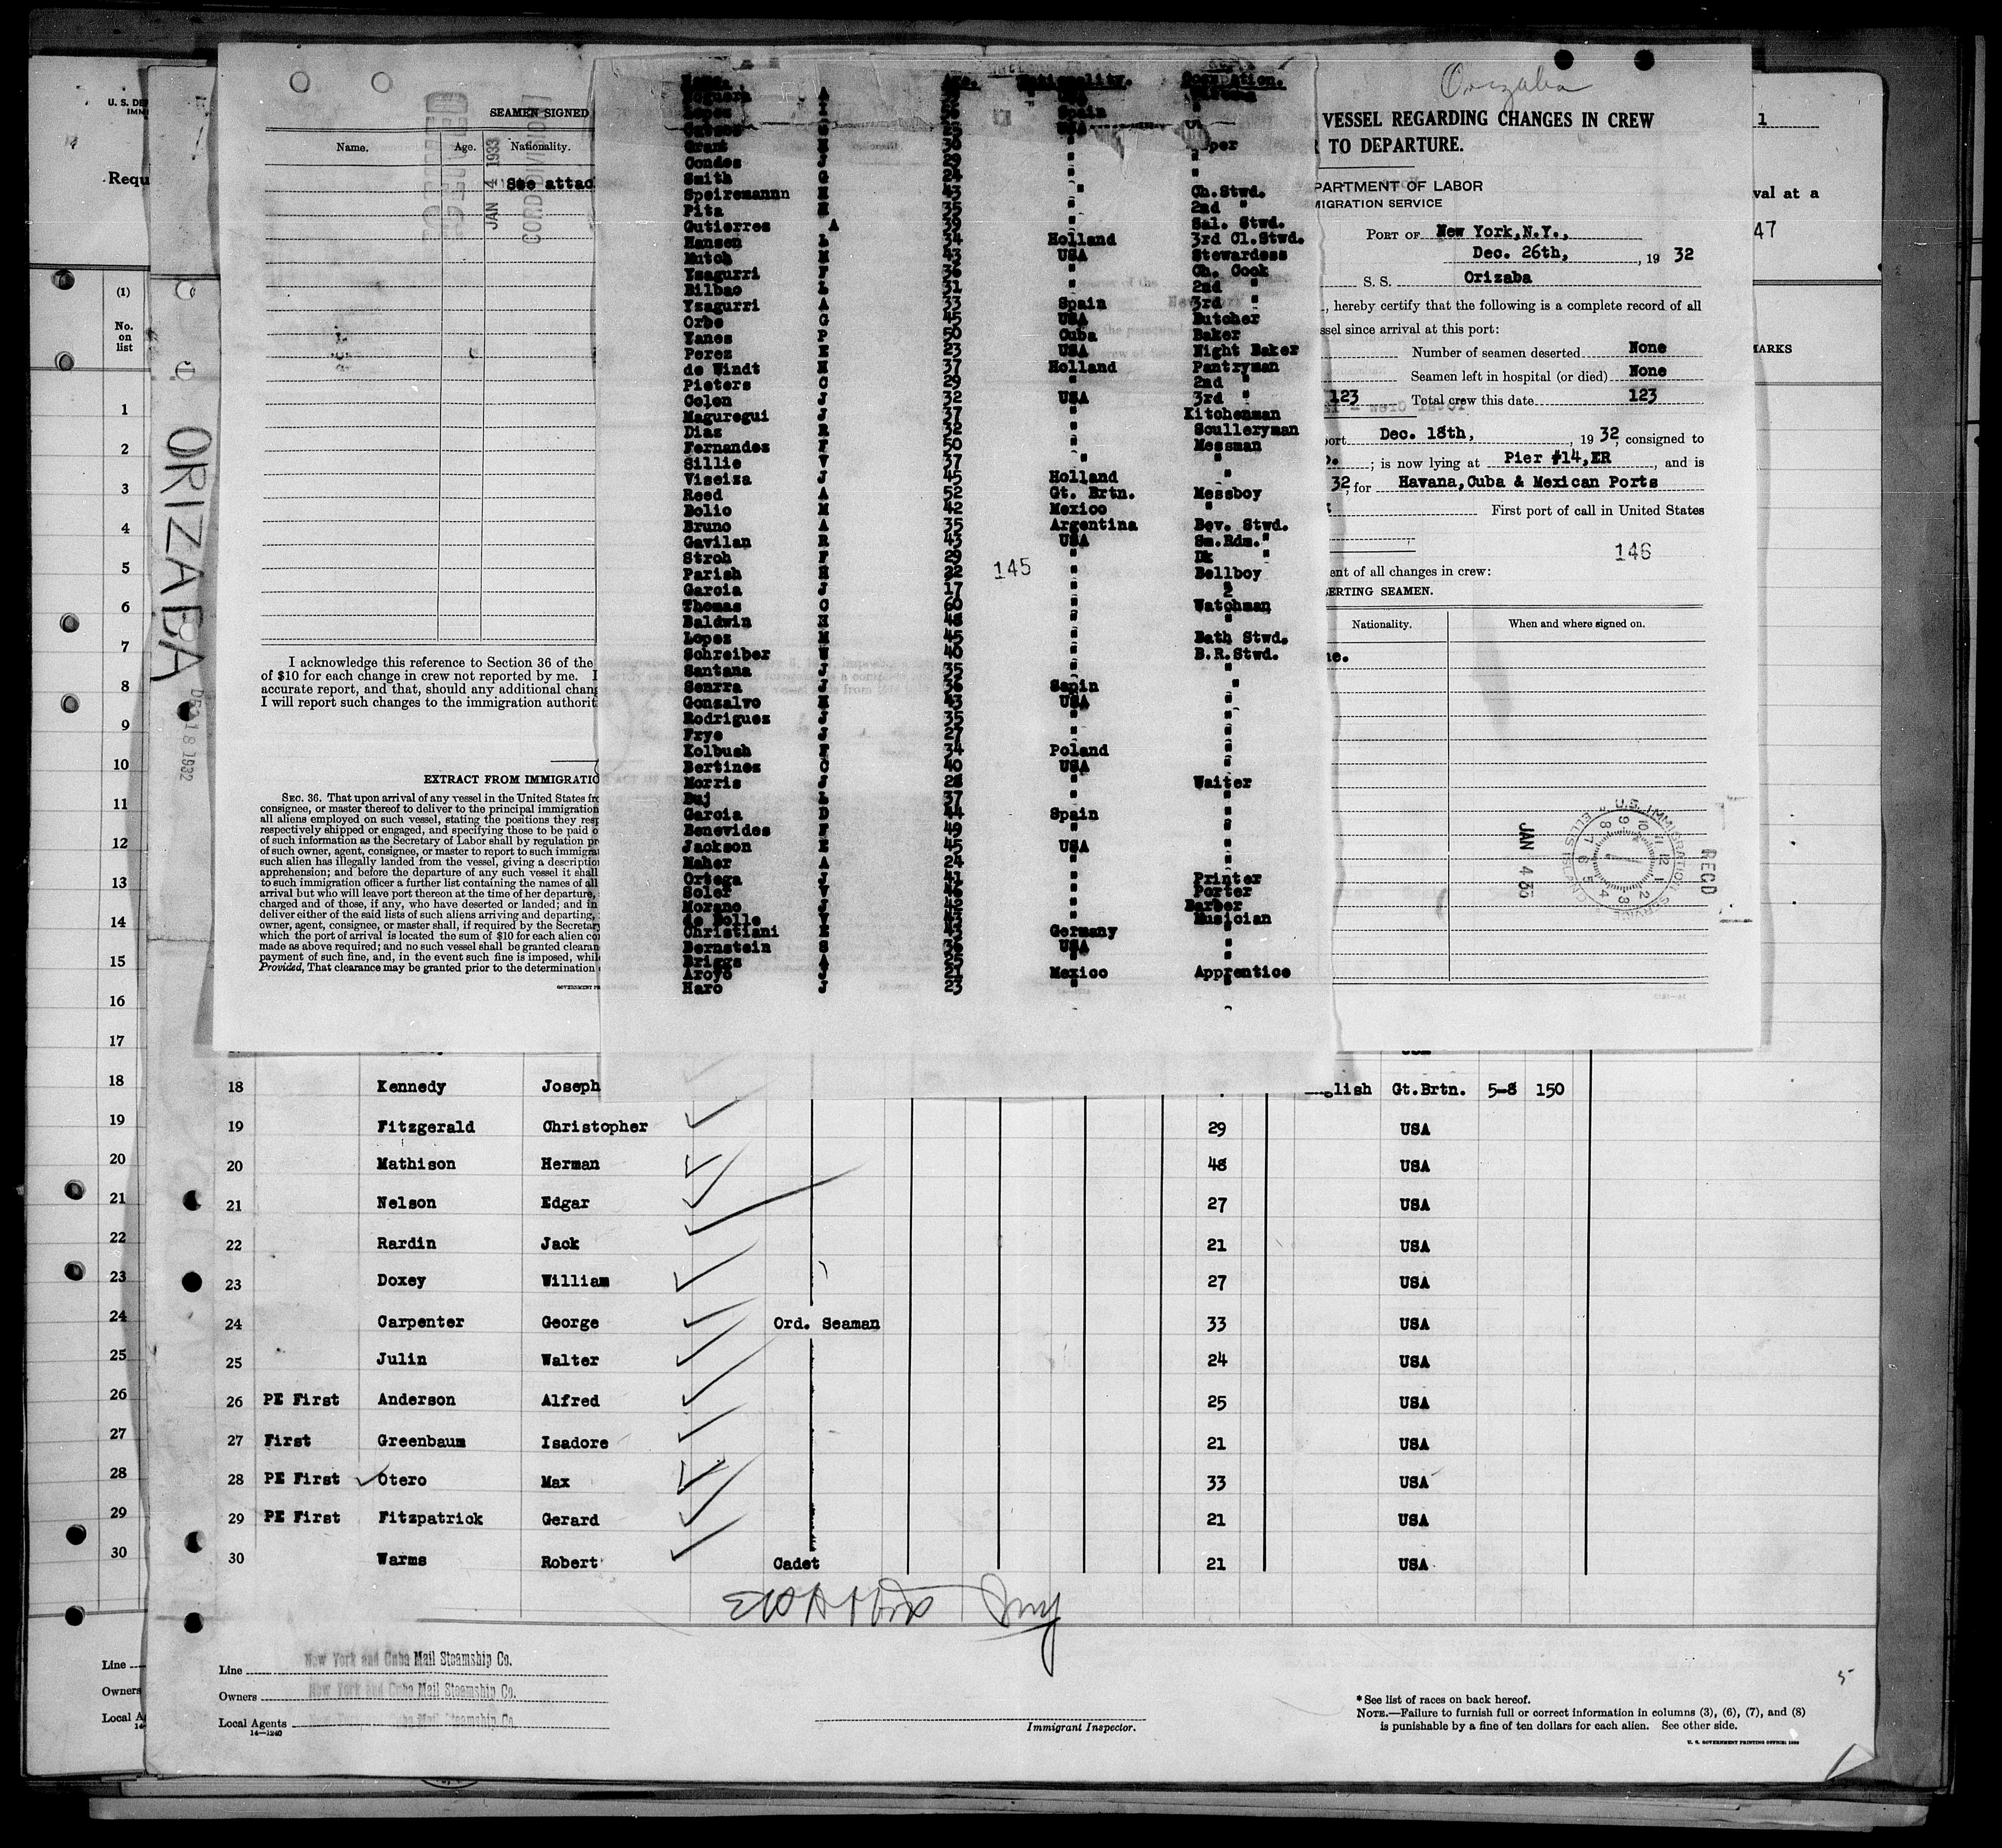 U. S. DE
IMMI
Requ
(1)
No.
on
list
1
2
3
4
5
6
7
8
9
10
11
12
13
14
15
16
17
18
19
20
21
22
23
24
25
26
27
28
29
30
Line
Owners
Local A
14-
ORIZABA
DEC 18 1932
SEAMEN SIGNED
Name. Age. Nationality.
JAN 4 1933
See attac
I acknowledge this reference to Section 36 of the
of $10 for each change in crew not reported by me. I
accurate report, and that, should any additional chang
I will report such changes to the immigration authorit
EXTRACT FROM IMMIGRATIO
SEC. 36. That upon arrival of any vessel in the United States fro
consignee, or master thereof to deliver to the principal immigration
all aliens employed on such vessel, stating the positions they resp
respectively shipped or engaged, and specifying those to be paid o
of such information as the Secretary of Labor shall by regulation pr
of such owner, agent, consignee, or master to report to such immigra
such alien has illegally landed from the vessel, giving a description
apprehension; and before the departure of any such vessel it shall
to such immigration officer a further list containing the names of all
arrival but who will leave port thereon at the time of her departure,
charged and of those, if any, who have deserted or landed; and in
deliver either of the said lists of such aliens arriving and departing,
owner, agent, consignee, or master shall, if required by the Secretary
which the port of arrival is located the sum of $10 for each alien co
made as above required; and no such vessel shall be granted clearan
payment of such fine, and, in the event such fine is imposed, whil
Provided, That clearance may be granted prior to the determination
GOVERNMENT PR
Name. Age. Nationality. Occupation.
Lopez Spain
USA
Grant 30 " per
Condes J 29 " "
Smith G 24 " "
Speiremannn 43 " Ch.Stwd.
Pita 35 " 2nd "
Gutierres A 39 " Sal. Stwd.
Hansen L 34 Holland 3rd Cl.Stwd.
Mutch M 43 USA Stewardess
Ysagurri F 36 " Ch. Cook
Bilbao L 31 " 2nd "
Ysagurri A 33 Spain 3rd "
Orbe G 45 USA Butcher
Yanes P 50 Cuba Baker
Perez E 23 USA Night Baker
de Windt M 37 Holland Pantryman
Pieters C 29 " 2nd "
Colon J 32 USA 3rd "
Maguregui J 37 " Kitchenman
Diaz R 32 " Sculleryman
Fernandez F 50 " Messman
Sillie V 37 " "
Viseiza J 45 Holland "
Reed A 52 Gt. Brtn. Messboy
Bolio M 42 Mexico "
Bruno A 35 Argentina Bev. Stwd.
Gavilan R 43 USA Sm.Rdm."
Stroh F 29 " Dk "
145
Parish H 22 " Bellboy
Garcia J 17 " "
Thomas C 60 " Watchman
Baldwin H 48 " "
Lopez M 45 " Bath Stwd.
Schreiber W 40 " B.R.Stwd.
Santana J 35 "
Senrra J 36 Sapin "
Gonzalvo 43 USA "
Rodriguez J 35 " "
Frye J 27 " "
Kolbush F 34 Poland "
Bertinez C 40 USA "
Morris J 28 " Waiter
Buj L 37 " "
Garcia D 44 Spain "
Benevides F 49 " "
Jackson E 45 USA "
Maher A 24 " "
Ortega J 41 " Printer
Soler V " Porter
Morano J 42 " Barber
de Rolle " Musician
Christiani E Germany "
Bernstein S 36 USA "
Briggs A 25 " "
Aroyo J 21 Mexico Apprentice
Haro J 23 " "
Orizaba
VESSEL REGARDING CHANGES IN CREW
TO DEPARTURE.
PARTMENT OF LABOR
MIGRATION SERVICE
PORT OF New York,N.Y.,
Dec. 26th, , 19 32
S. S. Orizaba
, hereby certify that the following is a complete record of all
ssel since arrival at this port:
Number of seamen deserted None
Seamen left in hospital (or died) None
123 Total crew this date 123
port Dec. 18th, , 19 32, consigned to
; is now lying at Pier #14,ER , and is
32, for Havana,Cuba & Mexican Ports
First port of call in United States
146
ent of all changes in crew:
ERTING SEAMEN.
Nationality. When and where signed on.
ne.
U.S. IMMIGRATION SERVICE ELLIS ISLAND
JAN 4 33
RECD
1
val at a
47
MARKS
18 Kennedy Joseph glish Gt.Brtn. 5-8 150
19 Fitzgerald Christopher 29 USA
20 Mathison Herman 48 USA
21 Nelson Edgar 27 USA
22 Rardin Jack 21 USA
23 Doxey William 27 USA
24 Carpenter George Ord. Seaman 33 USA
25 Julin Walter 24 USA
26 PE First Anderson Alfred 25 USA
27 First Greenbaum Isadore 21 USA
28 PE First Otero Max 33 USA
29 PE First Fitzpatrick Gerard 21 USA
30 Warms Robert Cadet 21 USA
Line New York and Cuba Mail Steamship Co.
Owners New York and Cuba Mail Steamship Co.
Local Agents New York and Cuba Mail Steamship Co.
14-1240
Immigrant Inspector.
5
* See list of races on back hereof.
NOTE.—Failure to furnish full or correct information in columns (3), (6), (7), and (8)
is punishable by a fine of ten dollars for each alien. See other side.
U. S. GOVERNMENT PRINTING OFFICE: